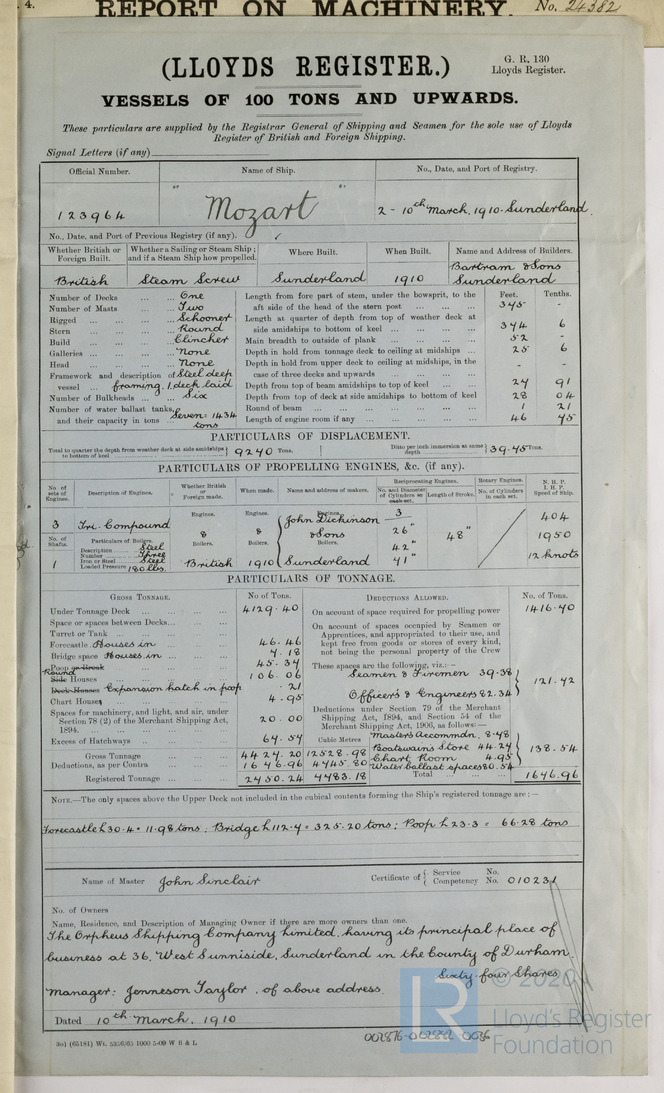 4.
REPORT ON MACHINERY. No. 24382
(LLOYDS REGISTER.)
G. R. 130
Lloyds Register.
VESSELS OF 100 TONS AND UPWARDS.
These particulars are supplied by the Registrar General of Shipping and Seamen for the sole use of Lloyds
Register of British and Foreign Shipping.
Signal Letters (if any)
Official Number. Name of Ship. No., Date, and Port of Registry.
123964 "Mozart" 2 - 10th March, 1910 - Sunderland.
No., Date, and Port of Previous Registry (if any).
Whether British or Foreign Built. Whether a Sailing or Steam Ship; and if a Steam Ship how propelled. Where Built. When Built. Name and Address of Builders.
British Steam Screw Sunderland 1910 Bartram & Sons Sunderland
Number of Decks One
Number of Masts Two
Rigged Schooner
Stern Round
Build Clincher
Galleries None
Head None
Framework and description of vessel Steel deep framing. 1 deck laid
Number of Bulkheads Six
Number of water ballast tanks, and their capacity in tons Seven: 1434 tons
Feet. Tenths.
Length from fore part of stem, under the bowsprit, to the aft side of the head of the stern post 345 -
Length at quarter of depth from top of weather deck at side amidships to bottom of keel 344 6
Main breadth to outside of plank 52 -
Depth in hold from tonnage deck to ceiling at midships 25 6
Depth in hold from upper deck to ceiling at midships, in the case of three decks and upwards - -
Depth from top of beam amidships to top of keel 27 91
Depth from top of deck at side amidships to bottom of keel 28 04
Round of beam 1 21
Length of engine room if any 46 75
PARTICULARS OF DISPLACEMENT.
Total to quarter the depth from weather deck at side amidships to bottom of keel 9240 Tons. Ditto per inch immersion at same depth 39.45 Tons.
PARTICULARS OF PROPELLING ENGINES, &c. (if any).
No. of sets of Engines. Description of Engines. Whether British or Foreign made. When made. Name and address of makers. Reciprocating Engines. No. and Diameter of Cylinders in each set. Length of Stroke. Rotary Engines. No. of Cylinders in each set. N. H. P. I. H. P. Speed of Ship.
Engines. Engines. Engines.
3 Tri. Compound & & John Dickinson & Sons 3 26" 42" 71" 48" 404 1950 12 knots
No. of Shafts. Particulars of Boilers. Boilers. Boilers. Boilers.
Description Steel
Number Three
Iron or Steel Steel
Loaded Pressure 180 lbs.
1 British 1910 Sunderland
PARTICULARS OF TONNAGE.
GROSS TONNAGE. No. of Tons.
Under Tonnage Deck 4129.40
Space or spaces between Decks
Turret or Tank
Forecastle Houses in 46.46
Bridge space Houses in 7.18
Poop or Break 45.37
Round Side Houses 106.06
Deck Houses Expansion hatch in poop .21
Chart Houses 4.95
Spaces for machinery, and light, and air, under Section 78 (2) of the Merchant Shipping Act, 1894. 20.00
Excess of Hatchways 64.57
Cubic Metres
Gross Tonnage 4424.20 12528.98
Deductions, as per Contra 1676.96 4745.80
Registered Tonnage 2750.24 7783.18
DEDUCTIONS ALLOWED. No. of Tons.
On account of space required for propelling power 1416.70
On account of spaces occupied by Seamen or Apprentices, and appropriated to their use, and kept free from goods or stores of every kind, not being the personal property of the Crew
These spaces are the following, viz.:—
Seamen & Firemen 39.38
Officers & Engineers 82.34 121.72
Deductions under Section 79 of the Merchant Shipping Act, 1894, and Section 54 of the Merchant Shipping Act, 1906, as follows:—
Master's Accommdn. 8.78
Boatswain's Store 44.27
Chart Room 4.95
Water ballast spaces 80.54 138.54
Total 1676.96
NOTE.—The only spaces above the Upper Deck not included in the cubical contents forming the Ship's registered tonnage are:—
Forecastle L 30.4 = 11.98 tons; Bridge L 112.7 = 325.20 tons; Poop L 23.3 = 66.28 tons
Name of Master John Sinclair Certificate of { Service No. Competency No. 010231
No. of Owners
Name, Residence, and Description of Managing Owner if there are more owners than one.
The Orpheus Shipping Company Limited, having its principal place of
business at 36, West Sunniside, Sunderland in the County of Durham.
Sixty-four Shares
Manager: Jenneson Taylor, of above address.
Dated 10th March, 1910
3o) (65181) Wt. 5356/05 1000 5-09 W B & L
002876-002882-0036
LR © 2020
Lloyd's Register
Foundation